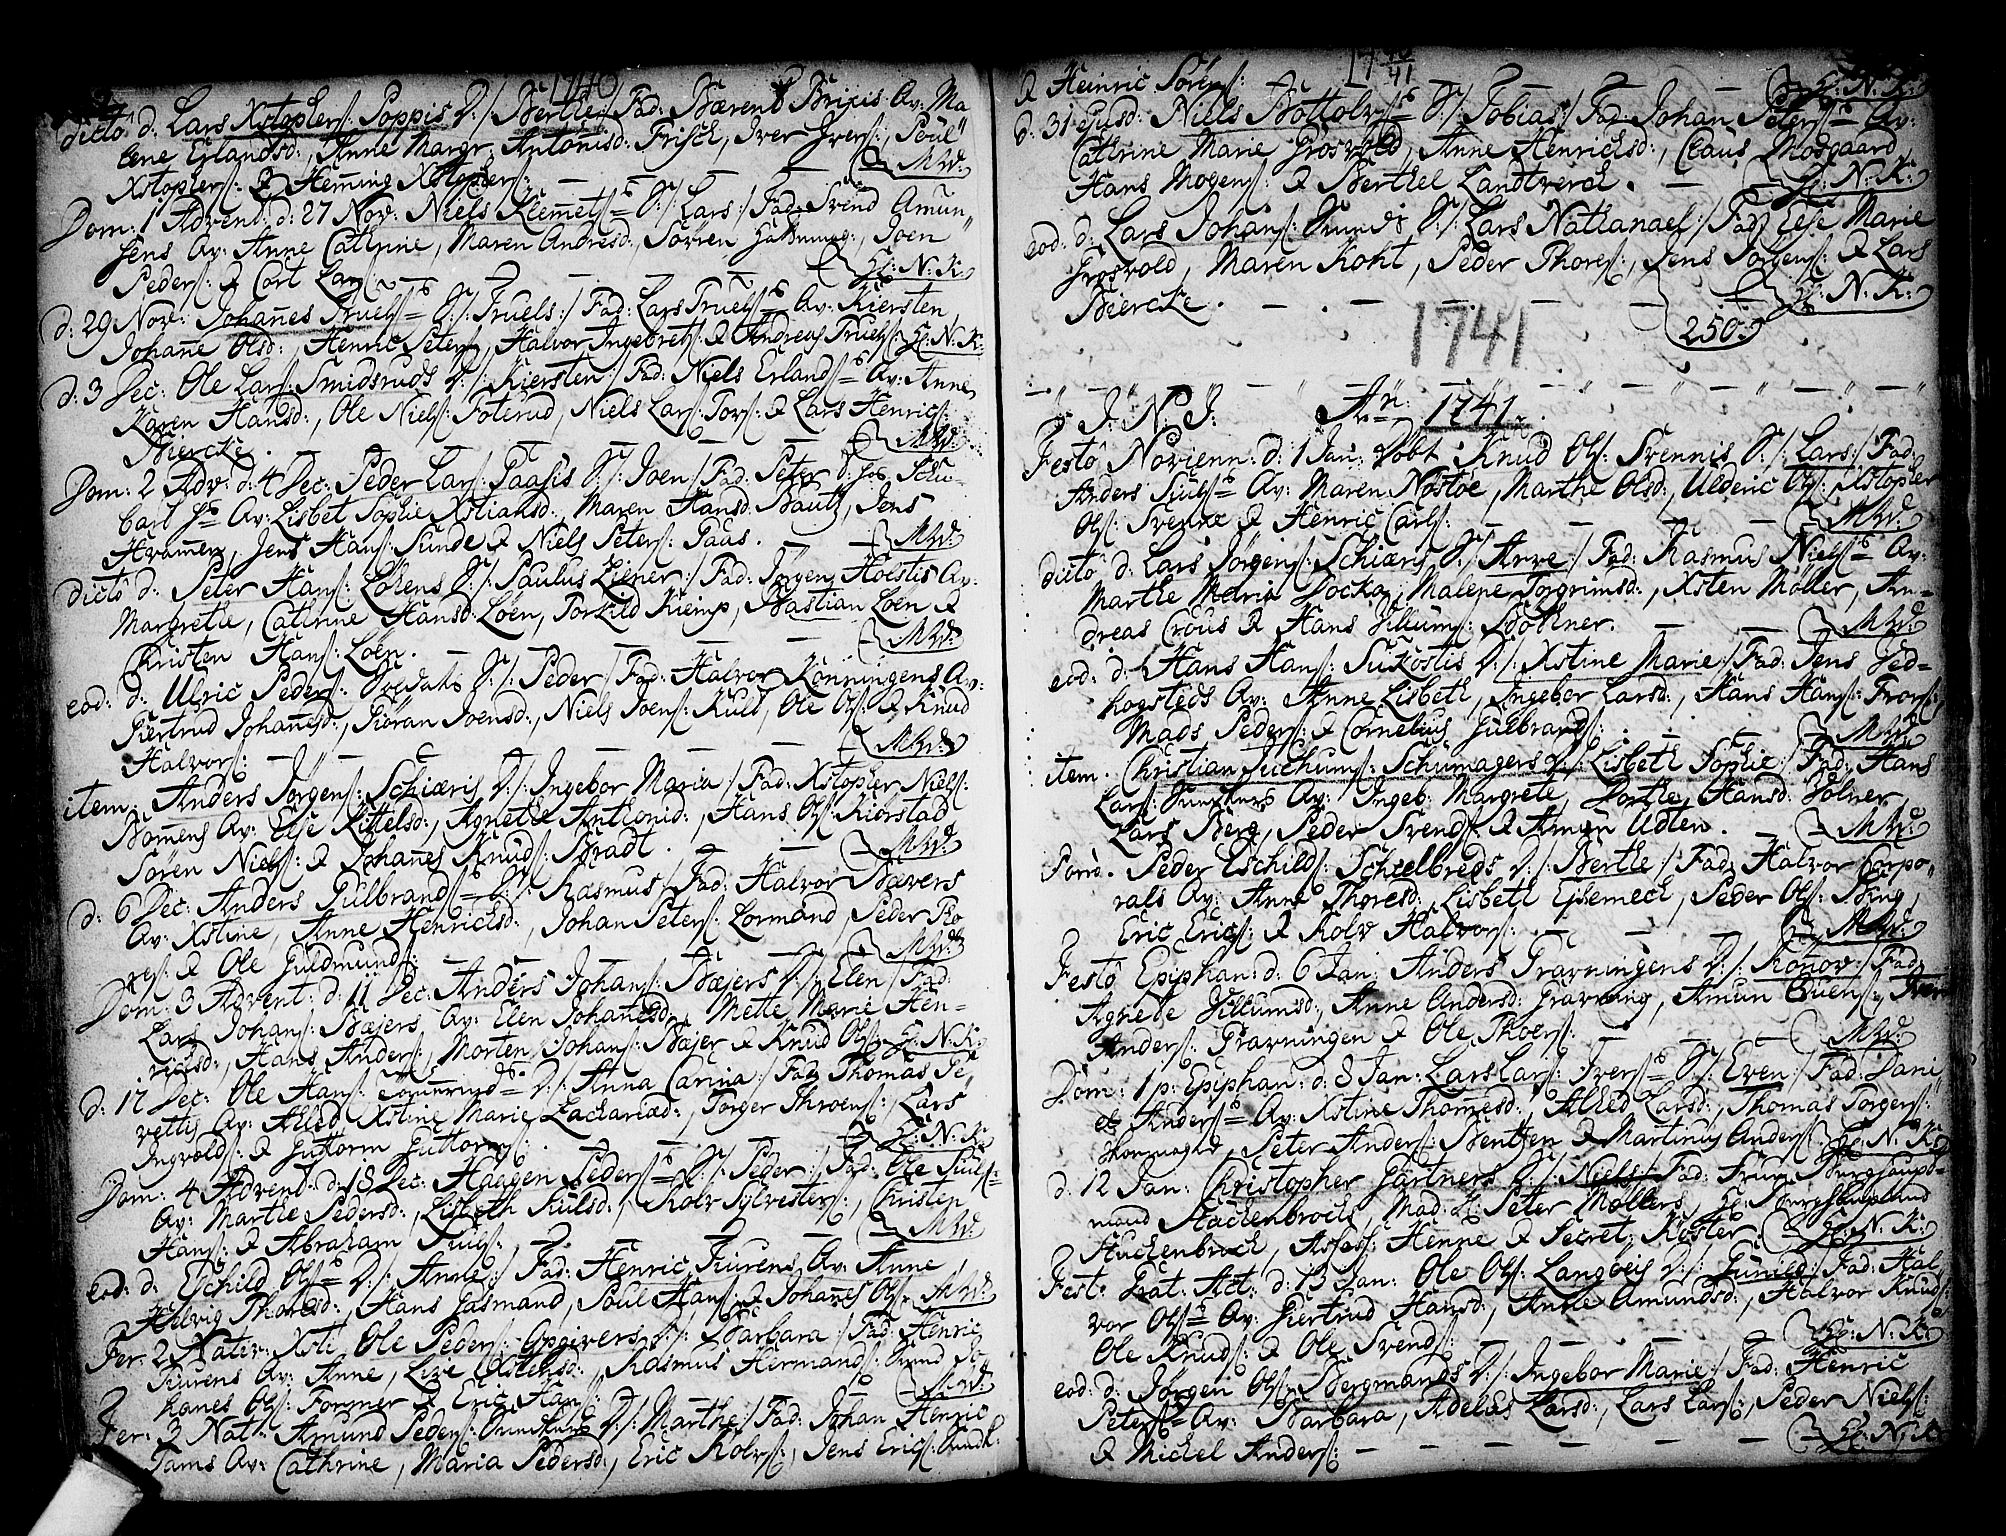 1740
dicto d: Lars Xstophers: Poppis D:/: Berthe:/ Fad: Bærent Brixis Av: Ma
lene Erlandsd:, Anne Margr: Antonisd: Frisch, Iver Ivers:, Poül
Xstophers: & Heming Xstophers:
Dom: 1 Advent: d: 27 Nov: Niels Klemets: S:/: Lars:/ Fad: Svend Amun
sens Av: Anne Cathrine, Maren Andresd:, Sören, Joen
Peders: & Cort Lars:
H: N: K:
d: 29 Nov: Johañes Truels: S:/: Truels:/ Fad: Lars Truels: Av: Kiersten,
Johañe Olsd:, Henric Peters:, Halvor Ingebrets: & Andreas Truels: H: N: K:
d: 3 Dec: Ole Lars: Smidsruds D:/: Kiersten:/ Fad: Niels Erlands: Av: Anne,
Karen Hansd:, Ole Niels: Foterud, Niels Lars: Tors: & Lars Henrics:
Biercke.
Dom: 2 Adv: d: 4 Dec: Peder Lars: Paasis S:/: Joen:/ Fad: Peter
Carl Av: Lisbet Sophie Xstiansd:, Maren Hansd: Bautz, Jens
Hvamen, Jens Hans: Sunde & Niels Peters: Paas.
dicto d: Peter Hans: Löhens S:/: Paulus Liener:/ Fad: Jörgen Holstis Av:
Margrethe, Cathrine Hansd: Löen, Torkild Kiemp, Bastian Löen &
Christen Hans: Löen.
eod: d: Ulric Peders: S:/: Peder:/ Fad: Halvor Konningens Av:
Giertrud Johañesd:, Giöran Joensd:, Niels Joens: Kult, Ole Ols: & Knud
Halvors:
item: Anders Jörgens: Schiæris D:/: Ingebor Maria:/ Fad: Xstopher Niels:
Nomens Av: Else Kittelsd:, Agnethe Anthonid:, Hans Ols: Kiörstad
Sören Niels: & Johañes Knuds: Bradt.
d: 6 Dec: Anders Gulbrands: S:/: Rasmus:/ Fad: Halvor Bævers
Av: Xstine, Anne Henrichsd:, Johan Peters: Lormand, Peder Po
res: & Ole Guldmunds:
Dom: 3 Advent: d: 11 Dec: Anders Johans: Bæjers D:/: Elen:/ Fad:
Lars Johans: Bæjers Av: Elen Johanesd:, Mette Marie Hen=
ricsd:, Hans Anders:, Morten Johans: Bæjer & Knud Ols: H: N: K:
d: 17 Dec: Ole Hans: D:/: Anna Carina:/ Fad: Thomas Pe
vettis Av: Alhed, Xstine Marie Zachariæd:, Torger Throens:, Lars
Ingvolds: & Guttorm Guttorms:
H: N: K:
Dom: 4 Advent: d: 18 Dec: Haagen Peders: S:/: Peder:/ Fad: Ole Juls:
Av: Marthe Pedersd:, Lisbeth Julsd:, Rolv Sylvesters:, Christen
Hans: & Abraham Juuls:
eod: d: Eschild Ols: D:/: Anne:/ Fad: Henric Kurens Av: Anne,
Helvig Tharesd:, Hans Gasmand, Poül Hans: & Johañes Ols:
Fer: 2 Nativ: Xsti Ole Peders: Opgivers D:/: Barbara:/ Fad: Henric
Kurens Av: Anne, Live Xstensd:, Rasmus Hermands:, Jo
hanes Ols: Former & Eric Hans:
Fer: 3 Nat: Amund Peders: D:/: Marthe:/ Fad: Johan Henric
Tams Av: Cathrine, Maria Pedersd:, Eric Rolvs:, Jens Erics:
17 40/41
& Heinric Sörens:
H: N: K:
d: 31 ejusd: Niels Bottolvs: S:/: Tobias:/ Fad: Johan Peters: Av:
Cathrine Marie Grosvold, Anne Henrichsd:, Claus Modgaard,
Hans Mogens: & Berthel Landtverch.
H: N: K:
eod: d: Lars Johans: S:/: Lars Nathanael:/ Fad: Else Marie
Grosvold, Maren Koht, Peder Thores:, Jens Jörgens: & Lars
Biercke.
H: N: K:
250.
1741
J: N: J: An: 1741.
Festo Novienn: d: 1 Jan: Döbt Knud Ols: Svennis S:/: Lars:/ Fad:
Anders Juuls: Av: Maren Nöstöe, Marthe Olsd:, Ulderic Ols:, Xstopher
Ols: Svenne & Henric Carls:
dicto d: Lars Jörgens: Schiæris S:/: Arne:/ Fad: Rasmus Niels: Av:
Marthe Maria Docka, Malene Torgrimsd:, Xsten Möller, An=
dreas Crous & Hans Villums: Böthner.
eod: d: Hans Hans: Sukostis D:/: Xstine Marie:/ Fad: Jens Hed=
hogsteds Av: Anne Lisbeth, Ingebor Larsd:, Hans Hans: Frors:,
Mads Peders: & Cornelius Gulbrands:
item. Christian Juchums: Schumagers D:/: Lisbeth Sophie:/ Fad: Hans
Lars: Av: Ingeb: Margrete, Dorthe Hansd: Dölner
Lars Berg, Peder Svends: & Amun Udten.
Porrò. Peder Eschilds: Schelbreds D:/: Berthe:/ Fad: Halvor Corpo
rals Av: Anne Thoresd:, Lisbeth Eisemech, Peder Ols: Bing,
Eric Erics: & Rolv Halvors:
Festo Epiphan: d: 6 Jan: Anders Gravningens D:/: Roñov:/ Fad:
Agnete Villumsd:, Anne Andersd: Gravning, Amun Euens:, Iver
Anders: Gravningen & Ole Thoers:
Dom: 1 p: Epiphan: d: 8 Jan: Lars Lars: Ivers: S:/: Even:/ Fad: Dani
el Anders: Av: Xstine Thomesd:, Alhed Larsd:, Thomas Jörgens:
Peter Anders: Bentzen & Martinus Anders: H: N: K:
d: 12 Jan: Christopher Gärtners S:/: Niels:/ Fad: Frue Berghaupt=
mand Stuckenbrochs, Mad: Peter Möllers, H: Berghauptmand
Stuckenbroch, Assess: Henne & Secret: Köster.
H: N: K:
Fest: Grat: Act: d: 13 Jan: Ole Ols: Langveis D:/: Gunild:/ Fad: Hal
vor Ols: Av: Giertrud Hansd:, Anne Amundsd:, Halvor Knuds:
Ole Knuds: & Ole Svends:
H: N: K:
eod: d: Jörgen Ols: Bergmands D:/: Ingebor Marie:/ Fad: Henric
Peters: Av: Barbara, Adelus Larsd:, Lars Lars:, Peder Niels:
& Michel Anders:
H: N: K: